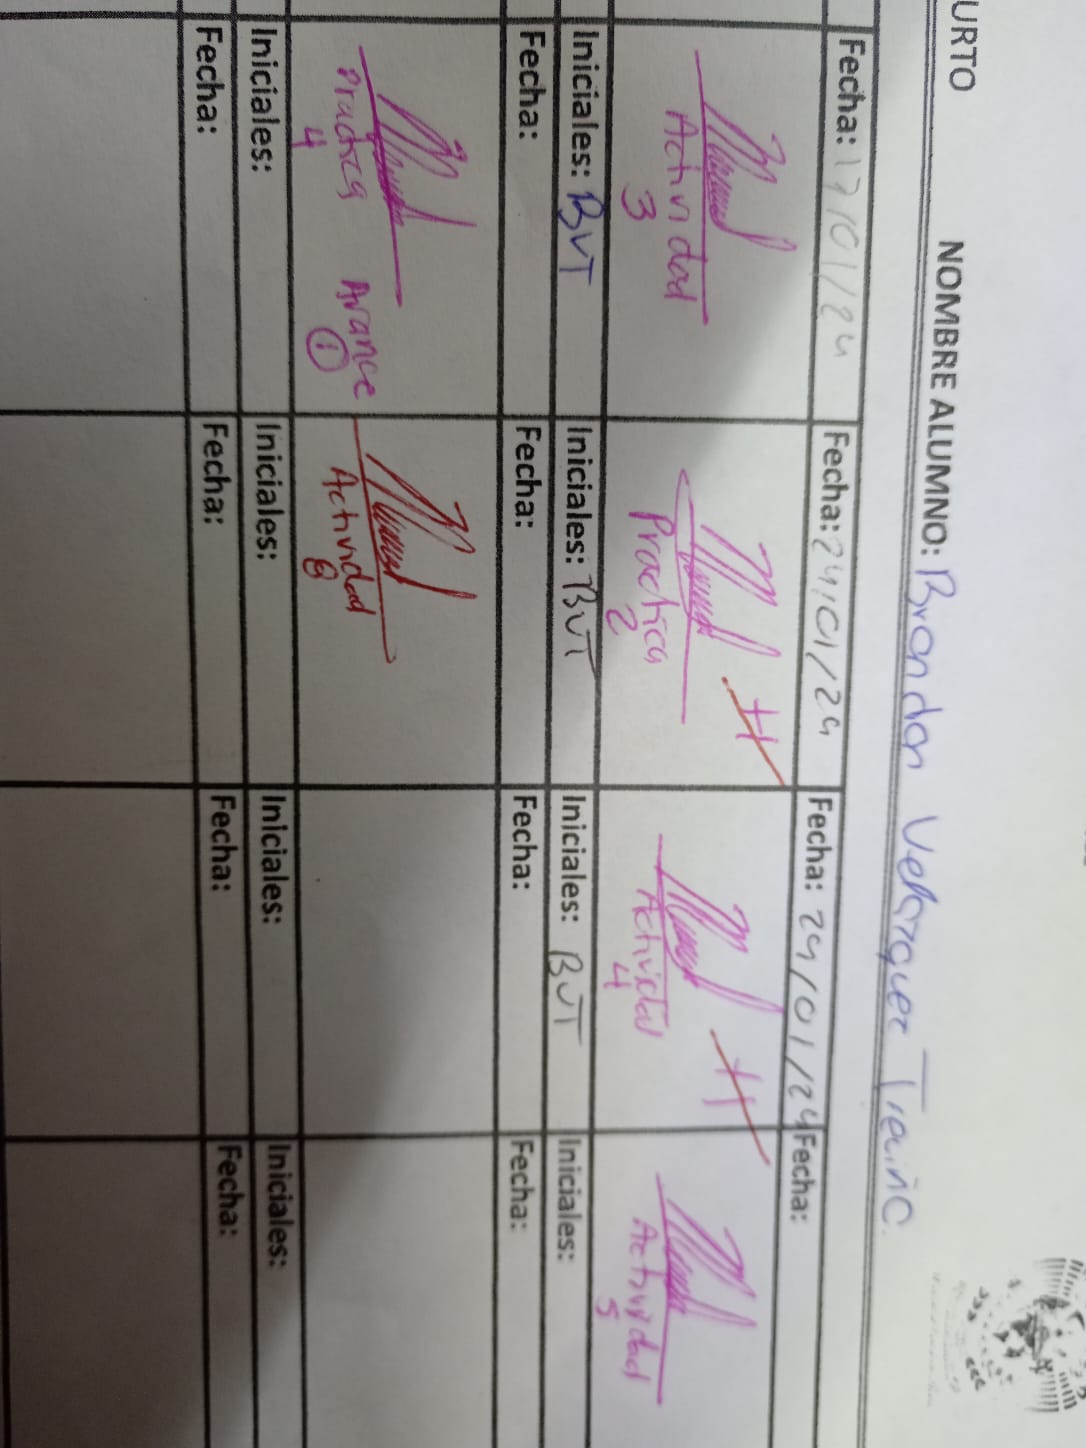 URTO NOMBRE ALUMNO: Brandon Velazquez Treviño.
Fecha: 17/01/24 Fecha: 24/01/24 Fecha: 29/01/24 Fecha:
Actividad 3
Practica 2
Actividad 4
Actividad 5
Iniciales: BVT Iniciales: BVT Iniciales: BVT Iniciales:
Fecha: Fecha: Fecha: Fecha:
Practica 4 Avance 1
Actividad 6
Iniciales: Iniciales: Iniciales: Iniciales:
Fecha: Fecha: Fecha: Fecha: